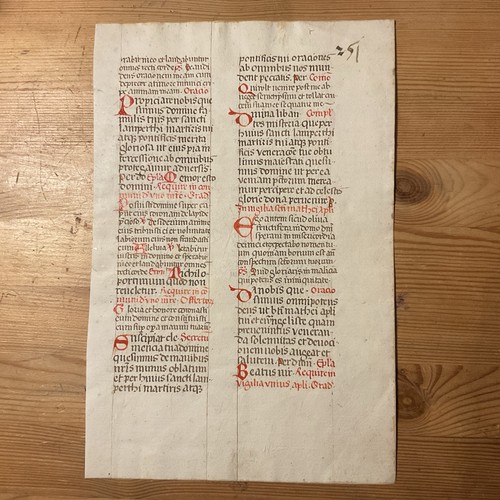 251
trabit nico et laudabuntur
omnes recti corde. ps. Exaudi
deus orationem meam cum
deprecor a timore inimici eri
pe animam meam. Oratio
Propiciare nobis que
sumus domine fa
mulis tuis per sancti
lamperthi martiris tui
atque pontificis merita
gloriosa ut eius pia in
tercessione ab omnibus
protegamur adversis
per do Epla Memor esto
domini. Require in com
muni
Posuisti domine super ca
put eius coronam de lapide
precioso V Desiderium anime
eius tribuisti ei et voluntate
labiorum eius non fraudasti
eum Alleluia V Letabitur
iustus in domino et sperabit
in eo et laudabuntur omnes
recti corde Nichil o
pertum est quod non
reveletur. Require in co
muni Offertorium
Gloria et honore coronasti
eum domine et constituisti
eum super opera manuum tuarum
Suscipiat cle Secreta
mencia tua domine
quesumus de manibus
nostris munus oblatum
et per huius sancti lam
perthi martiris atque
pontificis tui orationes
ab omnibus nos mun
det peccatis. per Como
Qui vult venire post me ab
neget semetipsum et tollat cru
cem suam et sequatur me
Domina liban Compl
tes misteria que per
huius sancti lamperthi
martiris tui atque ponti
ficis veneracione tue obtu
limus maiestati quesu
mus domine ut per ea
veniam peccatorum merea
mur percipere et ad celestis
glorie dona pervenire. p
In vigilia sancti mathei apli
Ego autem sicut oliva
fructifera in domo domini
speravi in misericordia
dei mei et expectabo nomen tu
um quoniam bonum est an
conspectum sanctorum tuorum
ps Quid gloriaris in malicia
qui potens es in iniquitate
Da nobis que Oratio
sumus omnipotens
deus ut beati mathei apli
tui et evangeliste quam
prevenimus veneran
da solemnitas et devoci
onem nobis augeat et
salutem. per dnm Epla
Beatus vir Require in
vigilia unius apli. Grad